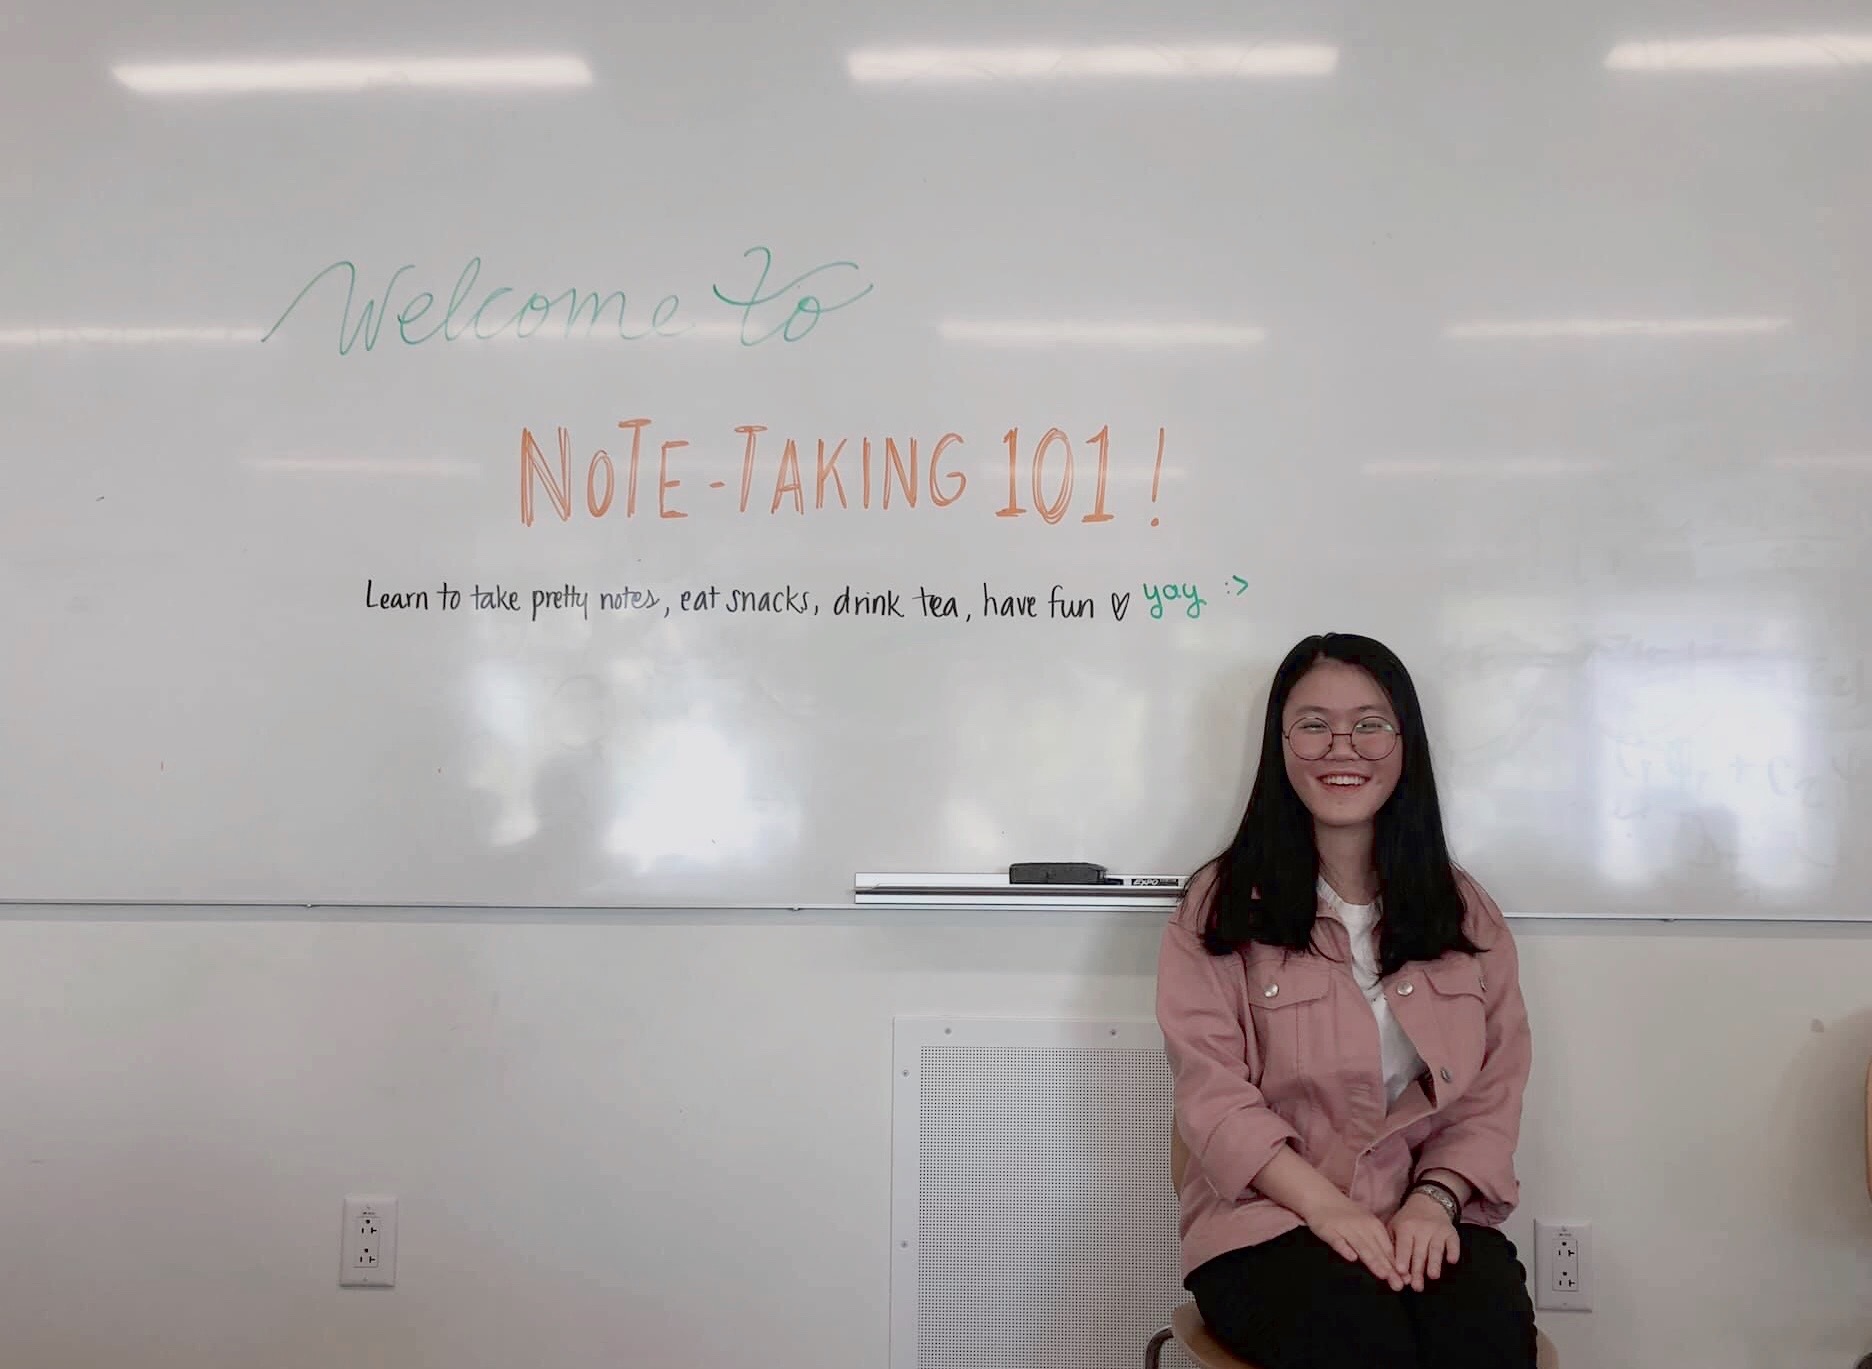 Welcome to
NOTE-TAKING 101!
Learn to take pretty notes, eat snacks, drink tea, have fun ♡ yay :>
EXPO